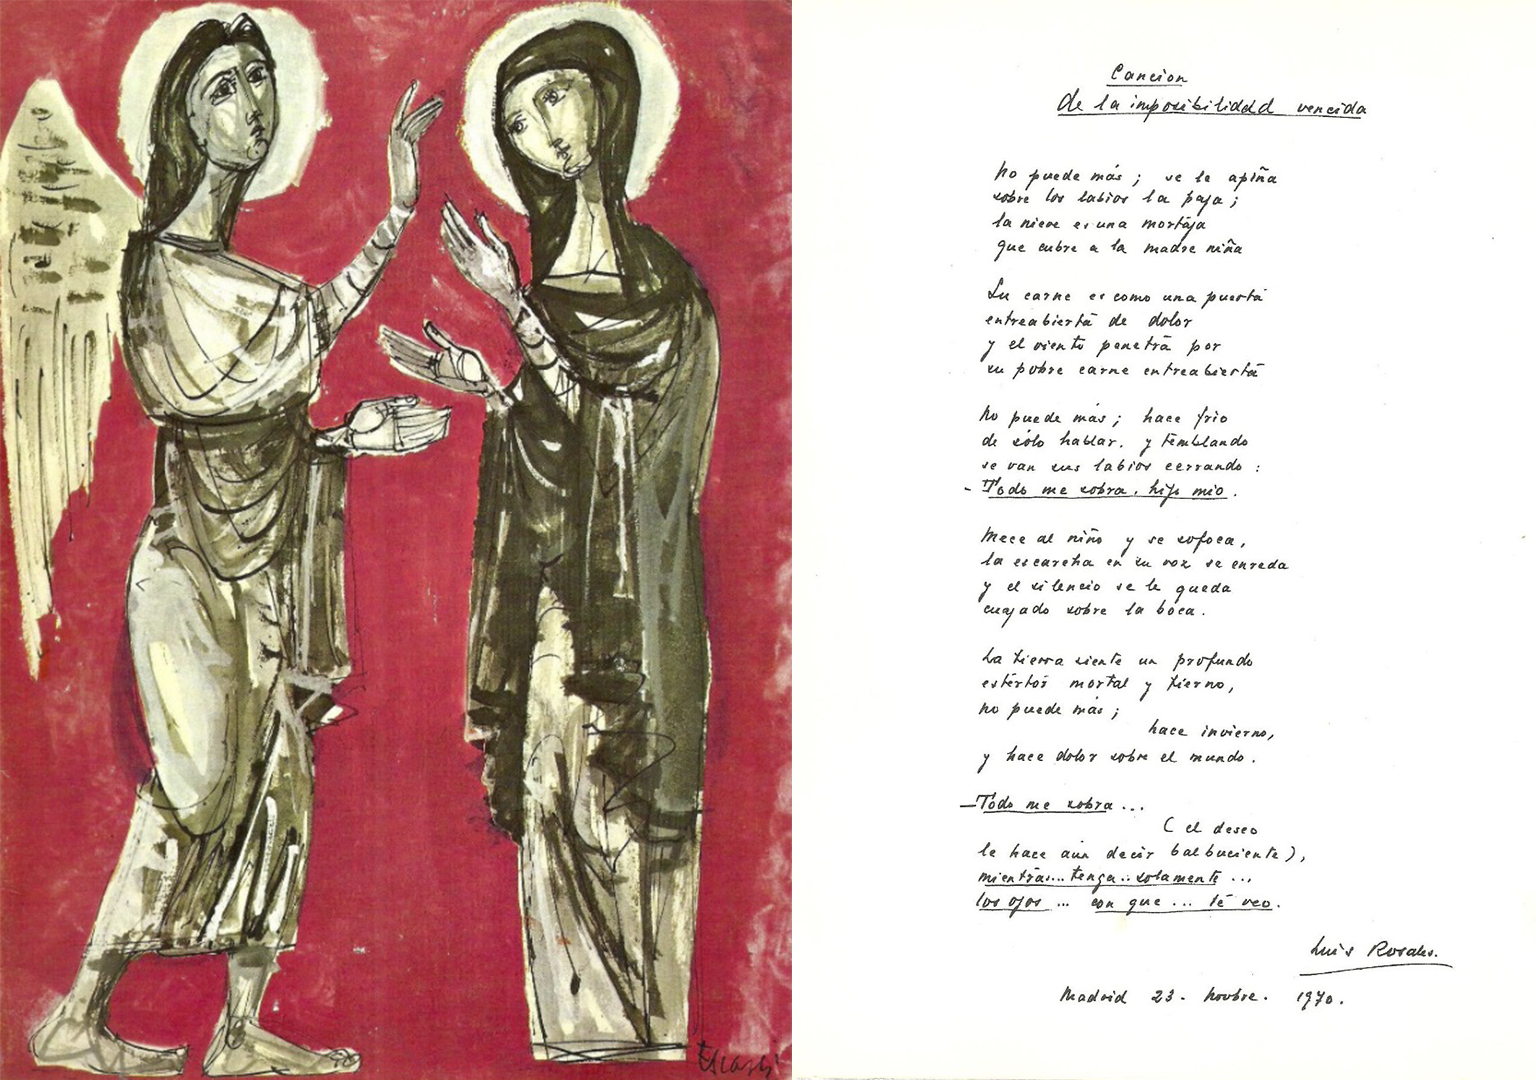 Cancion
de la imposibilidad vencida
No puede más; se le apiña
sobre los labios la paja;
la nieve es una mortaja
que cubre a la madre niña
Su carne es como una puerta
entreabierta de dolor
y el viento penetra por
su pobre carne entreabierta
No puede más; hace frio
de sólo hablar. y temblando
se van sus labios cerrando:
- Todo me sobra, hijo mio.
Mece al niño y se sofoca,
la escarcha en su voz se enreda
y el silencio se le queda
cuajado sobre la boca.
La tierra siente un profundo
estertor mortal y tierno,
no puede más;
hace invierno,
y hace dolor sobre el mundo.
- Todo me sobra...
( el deseo
le hace aún decir balbuciente),
mientras... tenga.. solamente...
los ojos... con que... te veo.
Luis Rosales.
Madrid 23. Novbre. 1970.